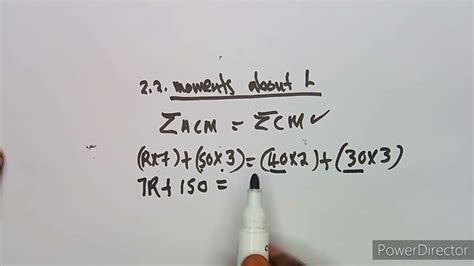 2.2. moments about L
ΣACM = ΣCM ✓
(R×7)+(50×3)=(40×2)+(30×3)
7R+150 =
PowerDirector